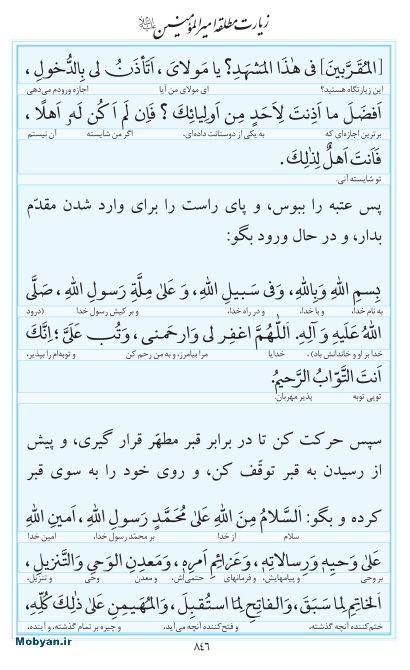 زیارت مطلقه امیرالمؤمنین علیه‌السلام
[المُقَرَّبينَ] فى هٰذَا المَشهَدِ؟ يا مَولاىَ، اَتَأذَنُ لى بِالدُّخولِ،
این زیارتگاه هستید؟ ای مولای من آیا اجازه ورودم می‌دهی
اَفضَلَ ما اَذِنتَ لِاَحَدٍ مِن اَولِيائِكَ؟ فَاِن لَم اَكُن لَهو اَهلًا،
برترین اجازه‌ای که به یکی از دوستانت داده‌ای، اگر من شایسته آن نیستم
فَاَنتَ اَهلٌ لِذٰلِكَ.
تو شایسته آنی.
پس عتبه را ببوس، و پای راست را برای وارد شدن مقدّم
بدار، و در حال ورود بگو:
بِسمِ اللهِ وَبِاللهِ، وَفى سَبيلِ اللهِ، وَ عَلىٰ مِلَّةِ رَسولِ اللهِ، صَلَّى
به نام خدا، و با خدا، و در راه خدا، و بر کیش رسول خدا (درود
اللهُ عَلَيهِ وَ آلِهِ. اَللّٰهُمَّ اغفِر لى وَارحَمنى، وَتُب عَلَىَّ؛ اِنَّكَ
خدا بر او و خاندانش باد)، خدایا مرا بیامرز، و به من رحم کن و توبه‌ام را بپذیر،
اَنتَ التَّوّابُ الرَّحيمُ.
تویی توبه پذیر مهربان.
سپس حرکت کن تا در برابر قبر مطهّر قرار گیری، و پیش
از رسیدن به قبر توقّف کن، و روی خود را به سوی قبر
کرده و بگو: اَلسَّلامُ مِنَ اللهِ عَلىٰ مُحَمَّدٍ رَسولِ اللهِ، اَمينِ اللهِ
سلام از خدا بر محمّد رسول خدا، امین خدا
عَلىٰ وَحيِهٖ وَرِسالاتِهٖ، وَعَزائِمِ اَمرِهٖ، وَمَعدِنِ الوَحىِ وَالتَّنزيلِ،
بر وحی و پیامهایش، و فرمانهای حتمی‌اش، و معدن وحی و تنزیل،
اَلخاتِمِ لِما سَبَقَ، وَالفاتِحِ لِمَا استُقبِلَ، وَالمُهَيمِنِ عَلىٰ ذٰلِكَ كُلِّهٖ،
ختم‌کننده آنچه گذشته، و فتح‌کننده آنچه می‌آید، و چیره بر تمام گذشته، و آینده،
Mobyan.ir
۸۴۶